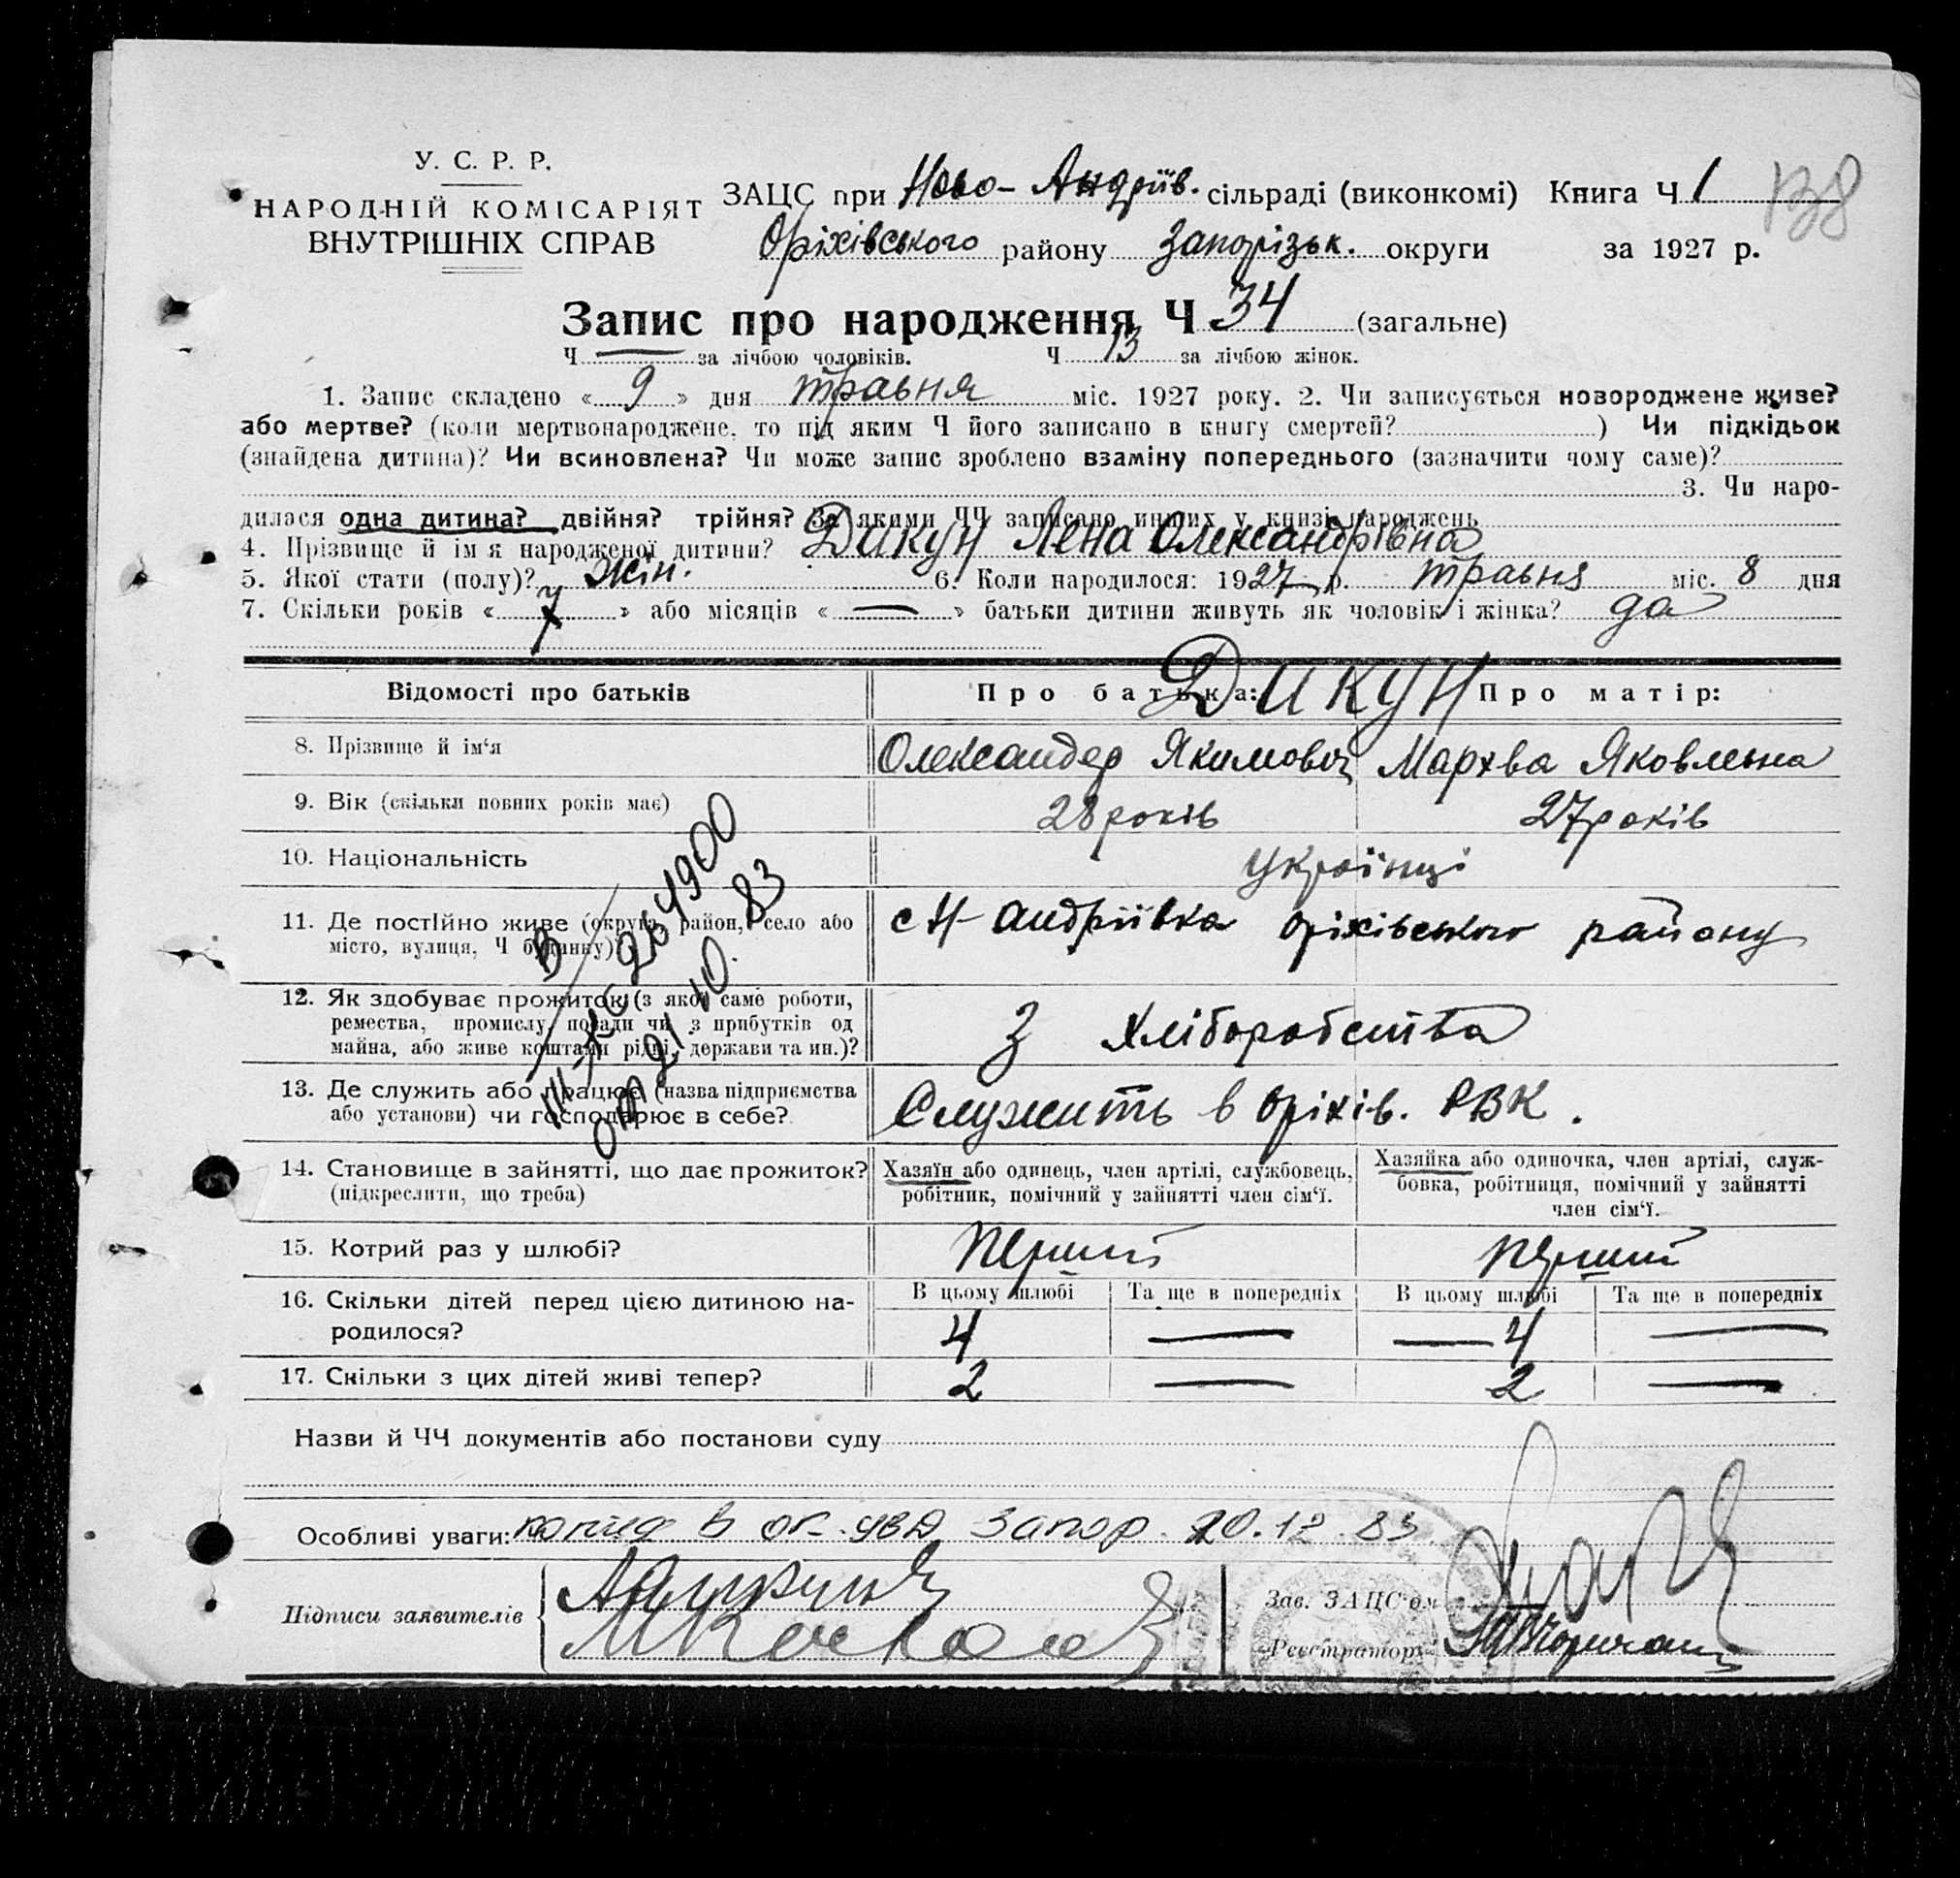 У. С. Р. Р.
НАРОДНІЙ КОМІСАРІЯТ
ВНУТРІШНІХ СПРАВ
ЗАЦС при Ново-Андріїв. сільраді (виконкомі) Книга Ч 1 138
Оріхівського району Запорізьк. округи за 1927 р.
Запис про народження Ч 34 (загальне)
Ч — за лічбою чоловіків. Ч 13 за лічбою жінок.
1. Запис складено « 9 » дня травня міс. 1927 року. 2. Чи записується новороджене живе?
або мертве? (коли мертвонароджене, то під яким Ч його записано в книгу смертей? ) Чи підкідьок
(знайдена дитина)? Чи всиновлена? Чи може запис зроблено взаміну попереднього (зазначити чому саме)?
3. Чи наро-
дилася одна дитина? двійня? трійня? За якими ЧЧ записано инших у книзі народжень
4. Прізвище й ім я народженої дитини? Дикун Лена Олександрівна
5. Якої стати (полу)? жін. 6. Коли народилося: 1927 р. травня міс. 8 дня
7. Скільки років « » або місяців « — » батьки дитини живуть як чоловік і жінка? да
Відомості про батьків Про батька: Дикун Про матір:
8. Прізвище й ім‘я Олександер Якимович Мархва Яковлевна
9. Вік (скільки повних років має) 28 років 27 років
10. Національність Українці
11. Де постійно живе (округа, район, село або
місто, вулиця, Ч будинку)? с Н-Андріївка Оріхівського району
12. Як здобуває прожиток (з якої саме роботи,
ремества, промислу, посади чи з прибутків од
майна, або живе коштами рідні, держави та ин.)? З хліборобства
13. Де служить або працює (назва підприємства
або установи) чи господарює в себе? Служить в Оріхів. РВК.
264900
от 21 10. 83
14. Становище в зайнятті, що дає прожиток?
(підкреслити, що треба)
Хазяїн або одинець, член артілі, службовець,
робітник, помічний у зайнятті член сім‘ї.
Хазяйка або одиночка, член артілі, служ-
бовка, робітниця, помічний у зайнятті
член сім‘ї.
15. Котрий раз у шлюбі? перший перший
16. Скільки дітей перед цією дитиною на-
родилося?
В цьому шлюбі Та ще в попередніх В цьому шлюбі Та ще в попередніх
4 — — 4 —
17. Скільки з цих дітей живі тепер? 2 — 2 —
Назви й ЧЧ документів або постанови суду
Особливі уваги: в Запор. 20.12.83
Підписи заявителів
Зав. ЗАЦС‘ом
Реєстратор